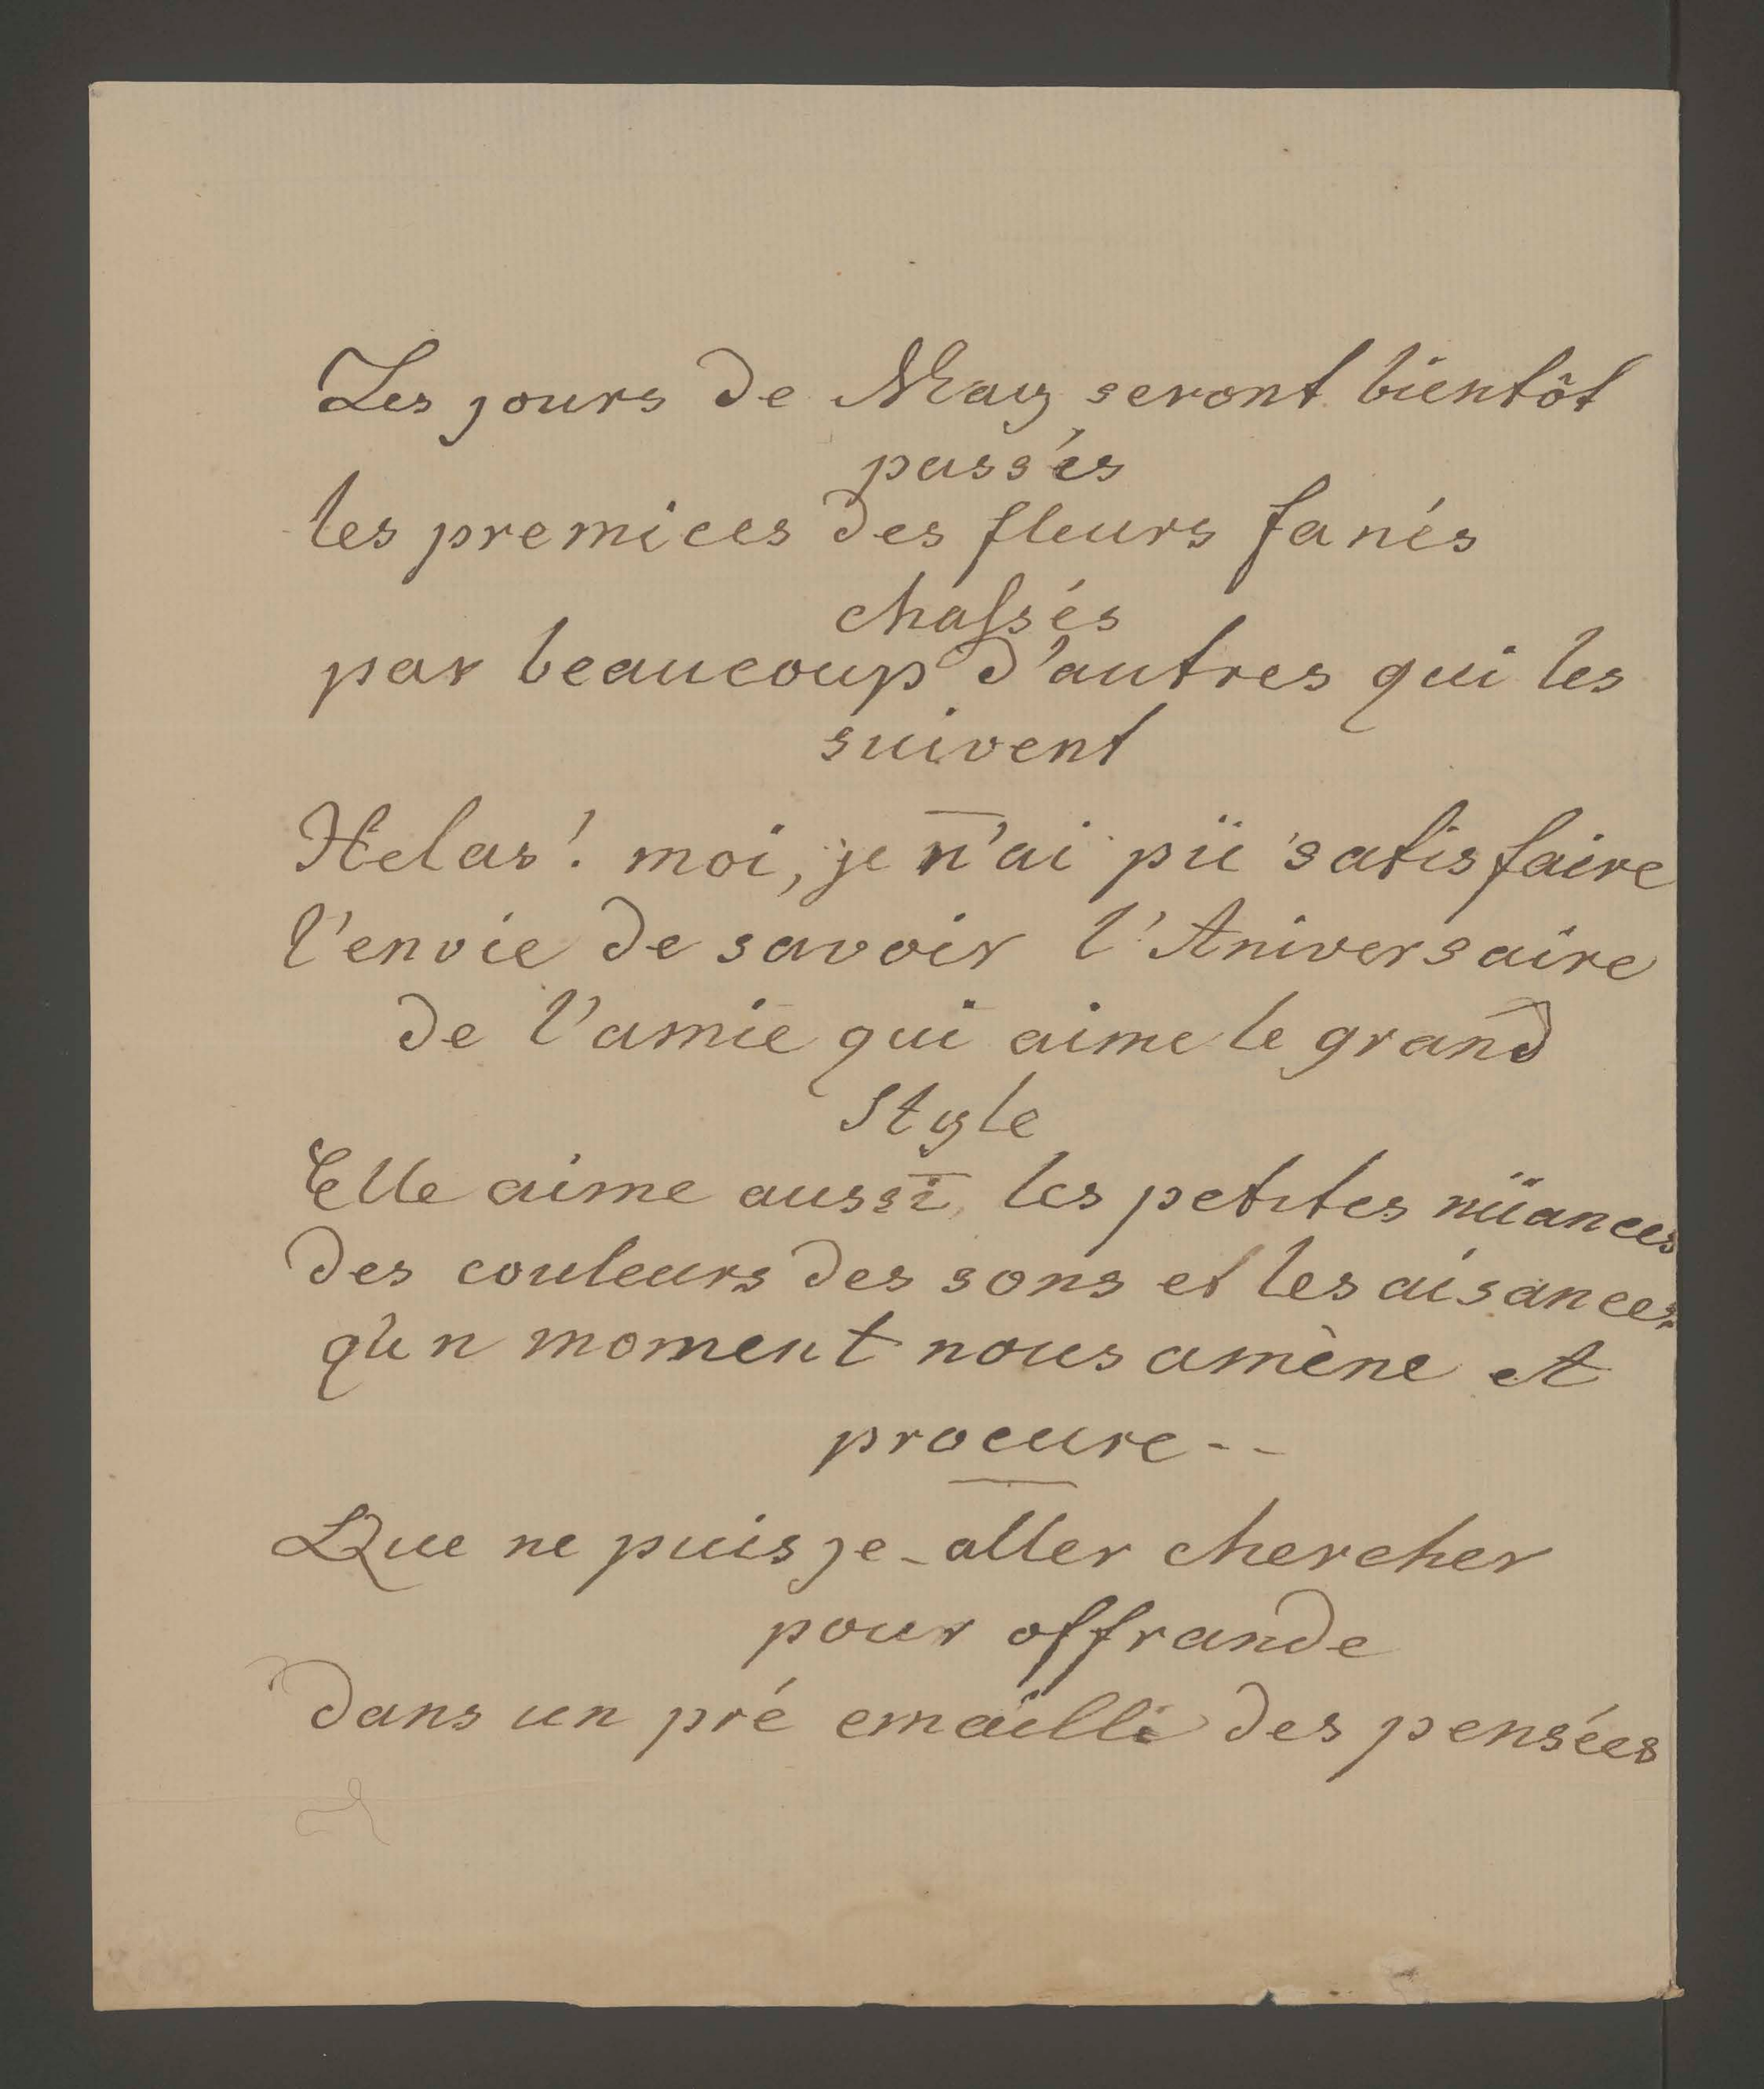 Les jours de May seront bientôt
passés
les premices des fleurs fanés
chassés
par beaucoup d'autres qui les
suivent
Helas! moi, je n'ai pü satisfaire
l'envie de savoir l'Aniversaire
de l'amie qui aime le grand
Style
Elle aime aussi, les petites nüances
des couleurs des sons et les aisances
qu'n moment nous amène et
procure--
Que ne puis je-aller chercher
pour offrande
dans un pré emaillé des pensées